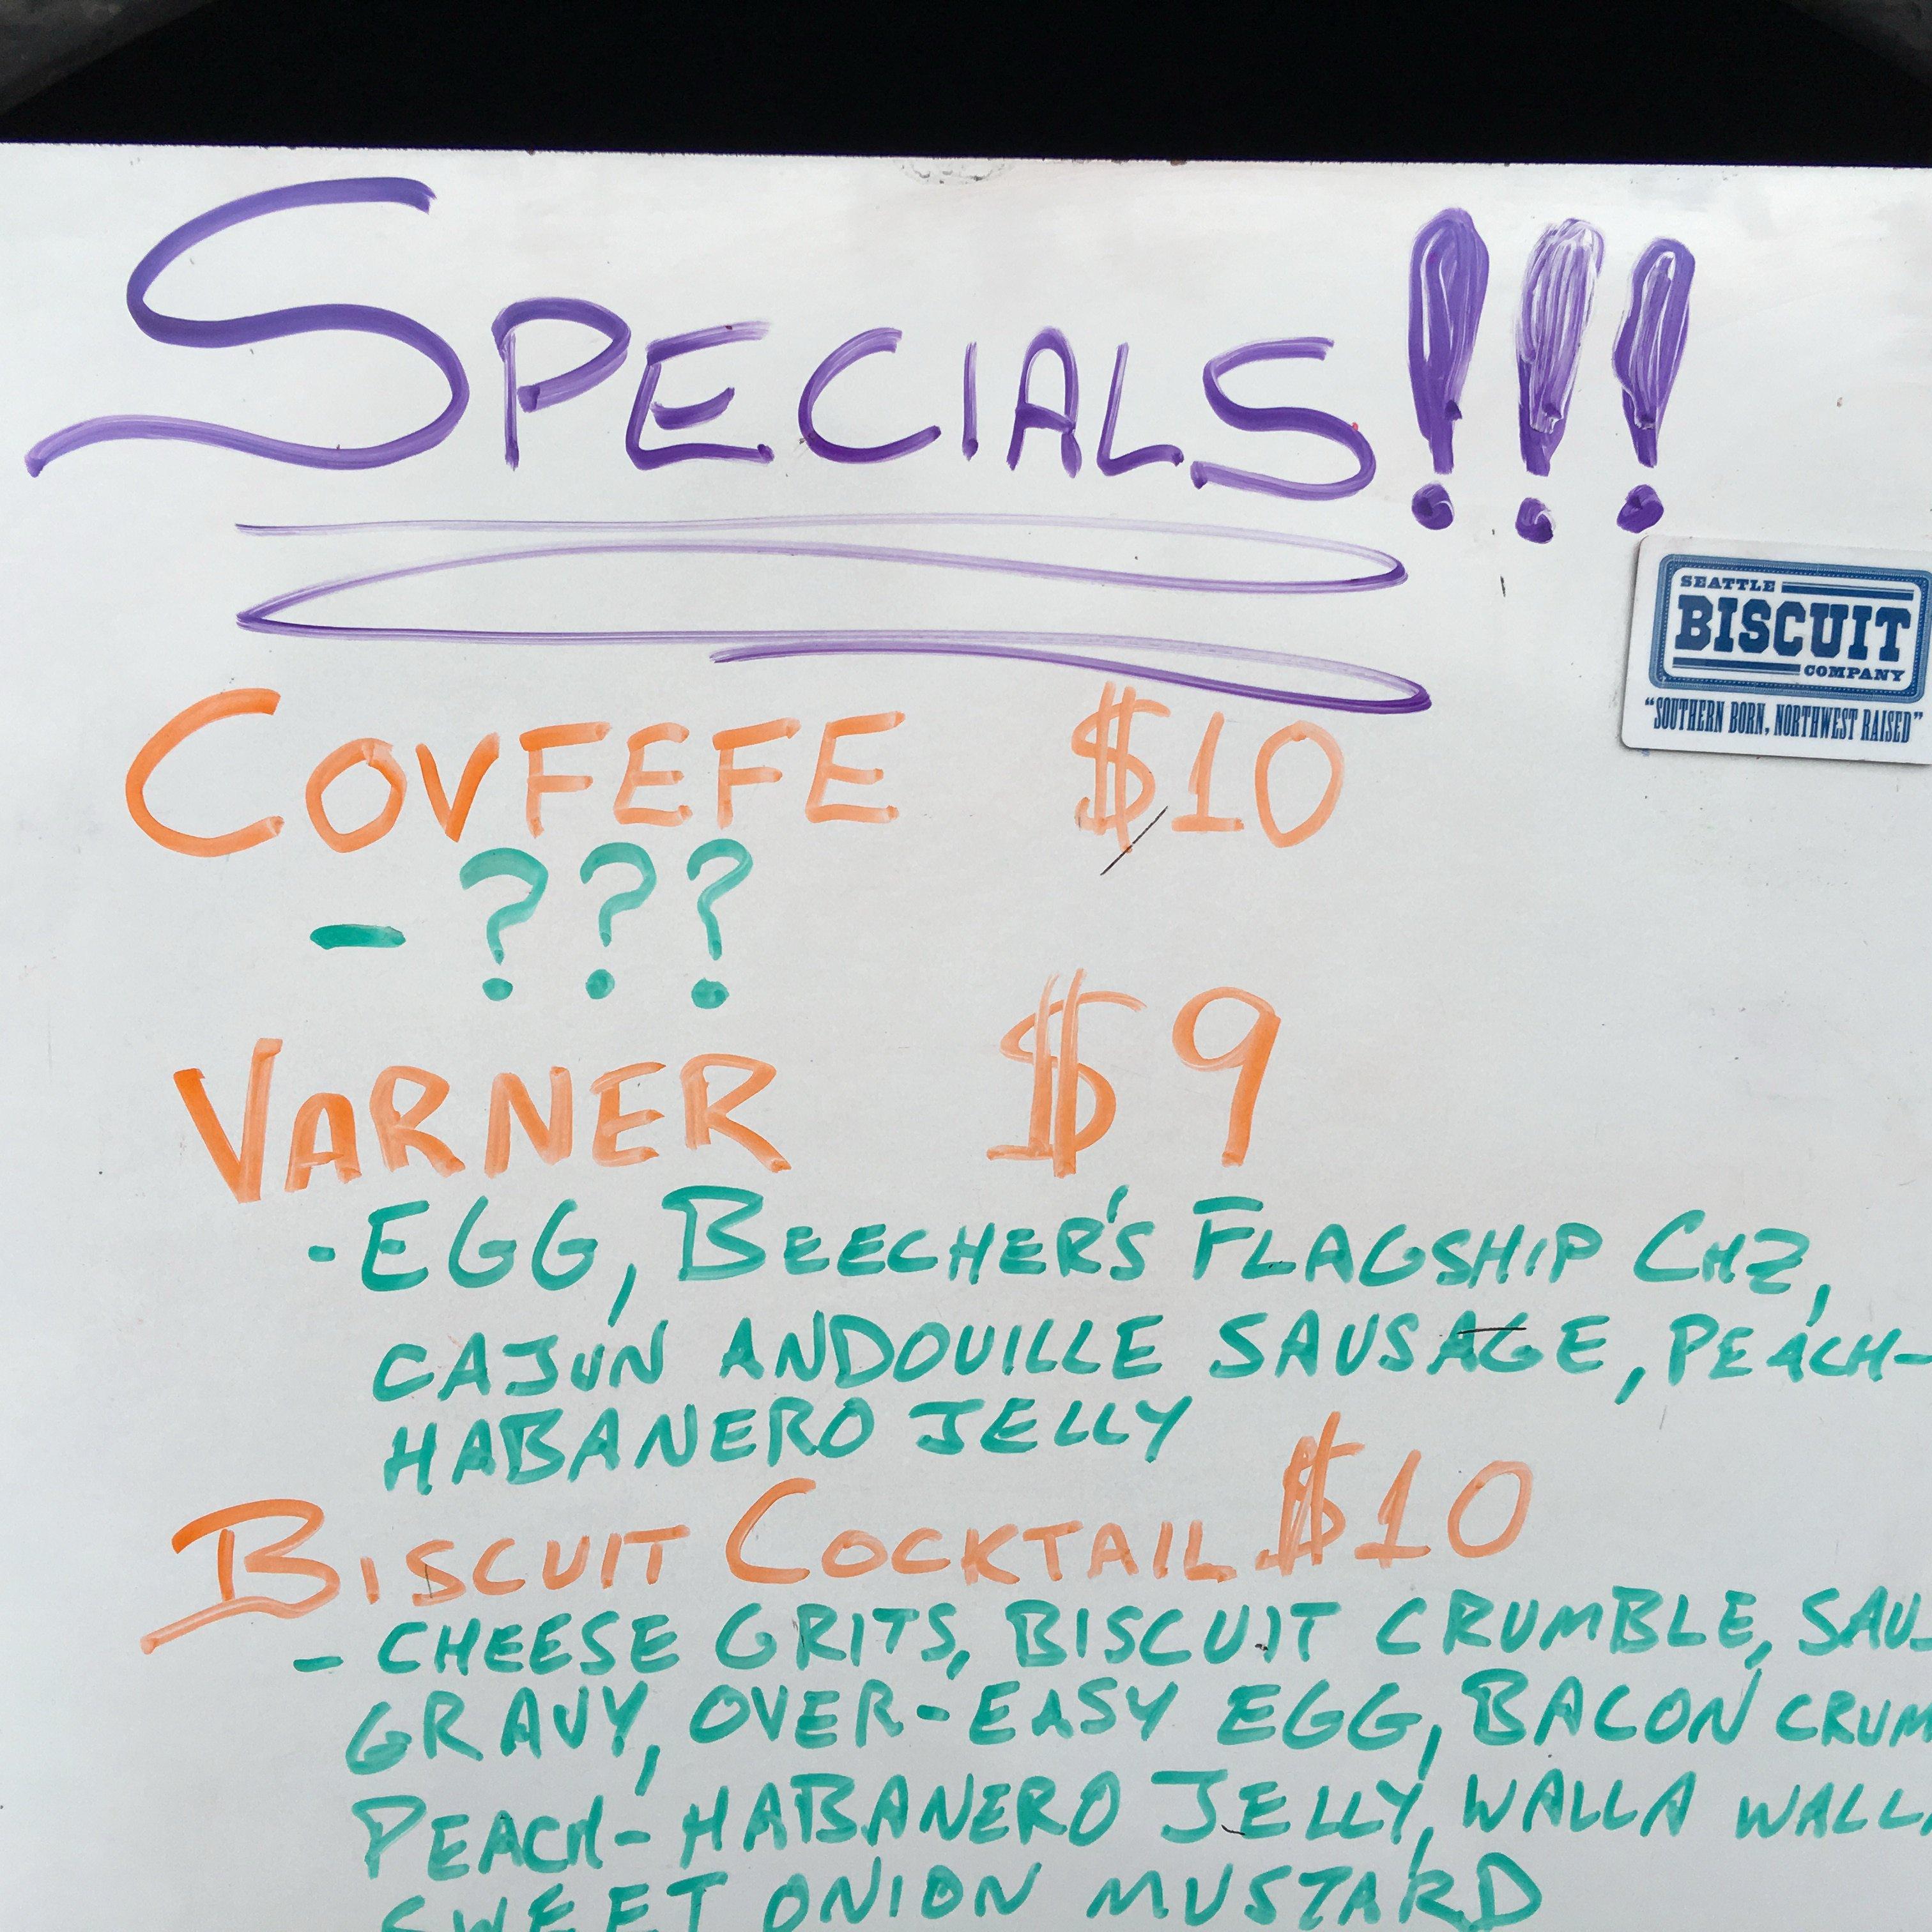 SPECIALS!!!
SEATTLE
BISCUIT
COMPANY
"SOUTHERN BORN, NORTHWEST RAISED"
COVFEFE $10
- ???
VARNER $9
- EGG, BEECHER'S FLAGSHIP CHZ,
CAJUN ANDOUILLE SAUSAGE, PEACH-
HABANERO JELLY
BISCUIT COCKTAIL $10
- CHEESE GRITS, BISCUIT CRUMBLE, SAU
GRAVY, OVER-EASY EGG, BACON CRUM
PEACH-HABANERO JELLY, WALLA WALLA
SWEET ONION MUSTARD